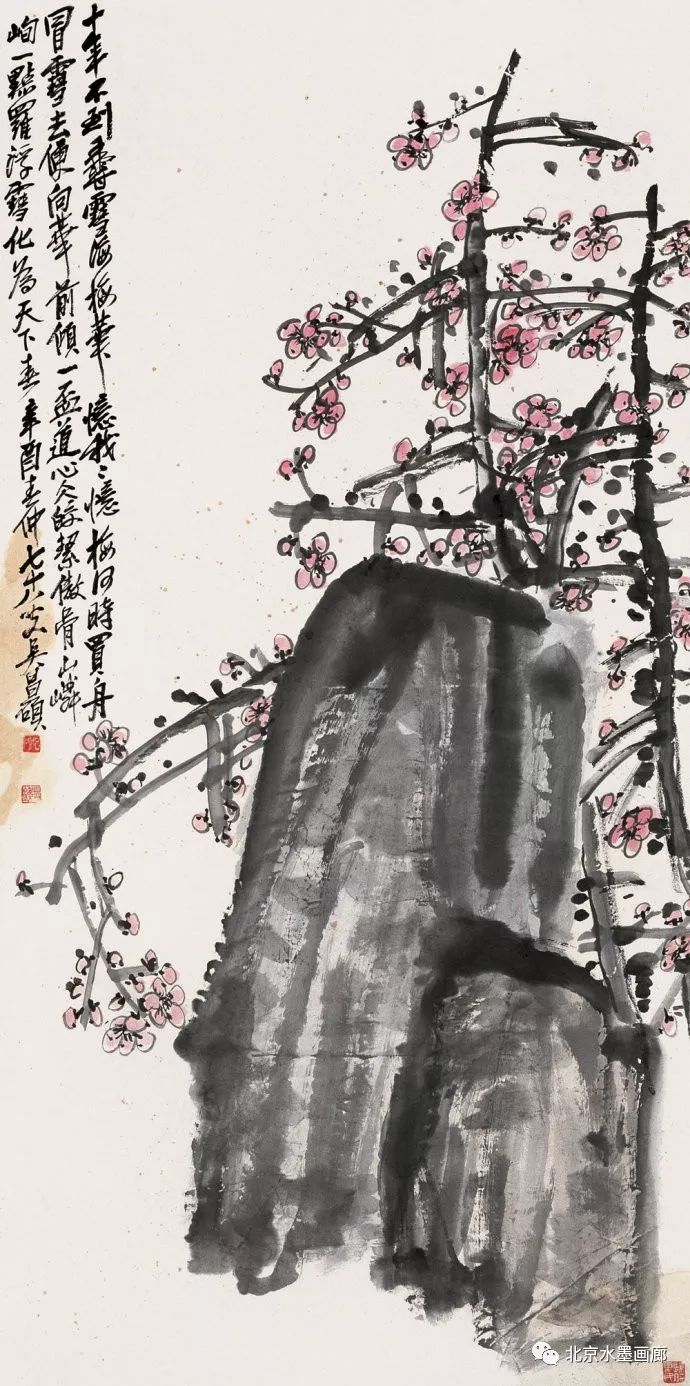 十年不到香雪海梅華憶我我憶梅何時買舟
冒雪去便向華前傾一盃道心久皎絜傲骨山嶙
峋一點羅浮雪化爲天下春辛酉春仲七十八叟吳昌碩
北京水墨画廊